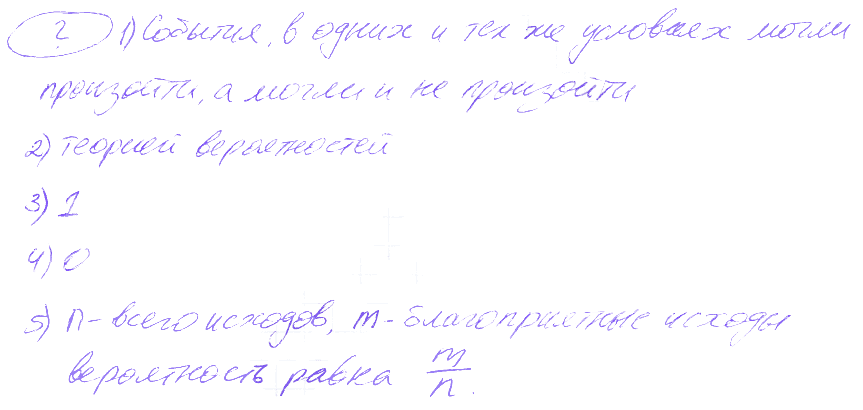 ? 1) События, в одних и тех же условиях могли
произойти, а могли и не произойти
2) теорией вероятностей
3) 1
4) 0
5) n - всего исходов, m - благоприятные исходы
вероятность равна m/n.